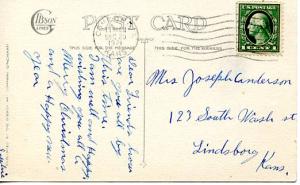 GIBSON
LINES
POST CARD
THIS SIDE FOR THE MESSAGE
THIS SIDE FOR THE ADDRESS
U.S. POSTAGE
1 CENT 1
Dear Friends how
are you all by
this time.
I am well and happy
wishing you all a
Merry Christmas
and a Happy New
year
Mrs Joseph Anderson
123 South Wash st
Lindsborg
Kans.